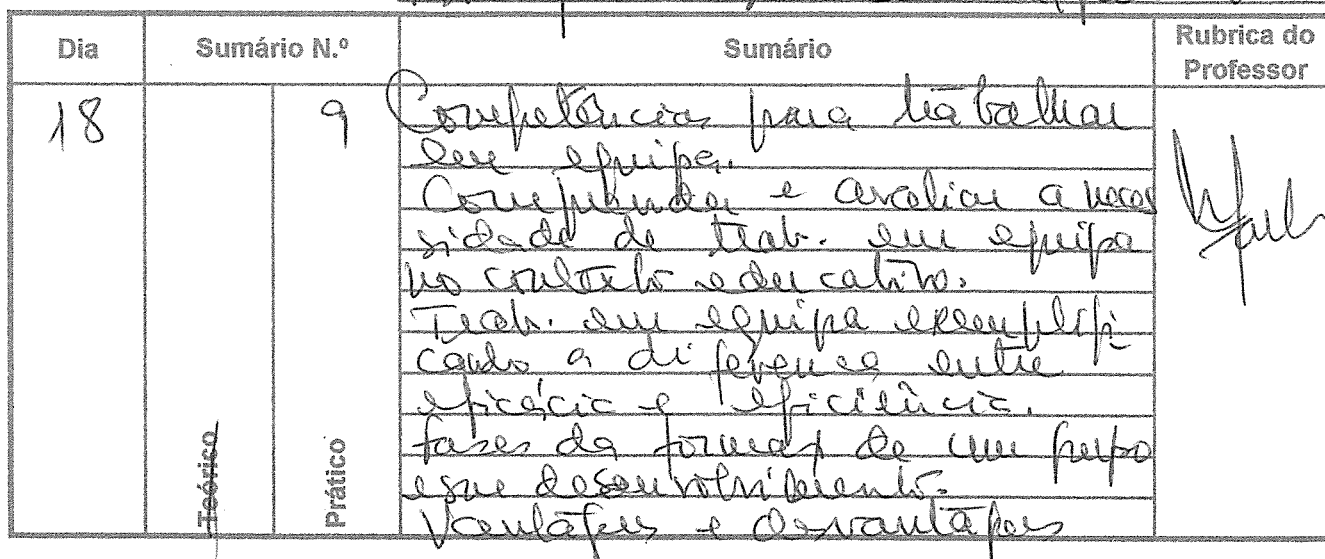 Dia Sumário N.º Sumário Rubrica do Professor
18 9 Competências para trabalhar
em equipa.
Compreender e avaliar a neces
sidade de trab. em equipa
no contexto educativo.
Trab. em equipa exemplifi
cando a diferença entre
eficácia e eficiência.
fases da formaç de um grupo
e seu desenvolvimento.
Vantagens e desvantagens
Teórico
Prático